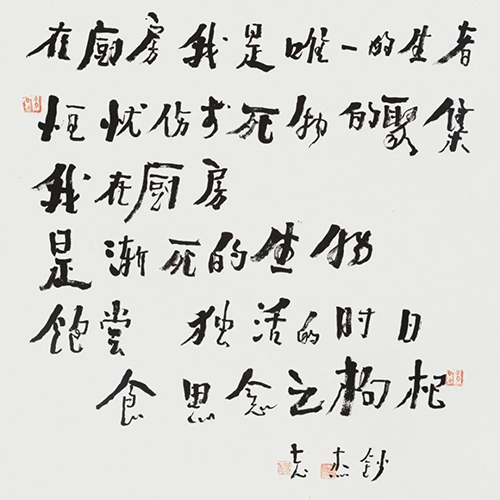 在厨房我是唯一的生者
恒忧伤于死物的聚集
我在厨房
是渐死的生物
饱尝 独活的时日
食思念之枸杞
志杰鈔